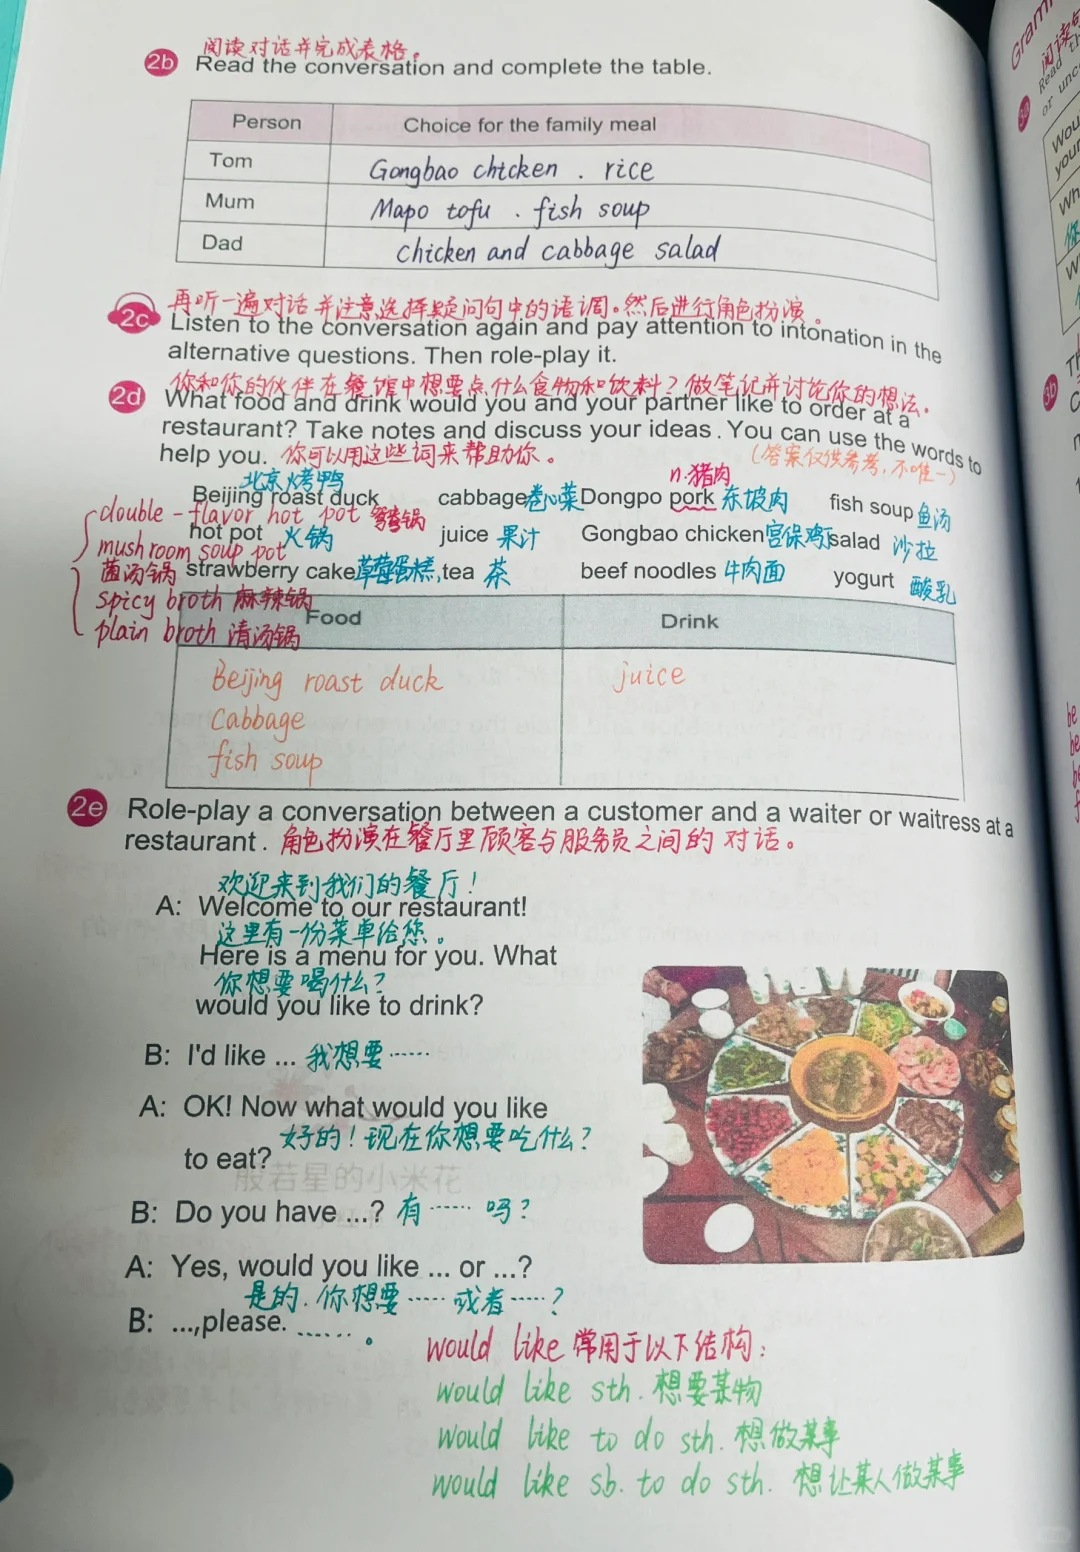 阅读对话并完成表格。
2b Read the conversation and complete the table.
Person Choice for the family meal
Tom Gongbao chicken . rice
Mum Mapo tofu . fish soup
Dad chicken and cabbage salad
再听一遍对话并注意选择疑问句中的语调。然后进行角色扮演。
2c Listen to the conversation again and pay attention to intonation in the
alternative questions. Then role-play it.
你和你的伙伴在餐馆中想要点什么食物和饮料？做笔记并讨论你的想法。
2d What food and drink would you and your partner like to order at a
restaurant? Take notes and discuss your ideas. You can use the words to
help you. 你可以用这些词来帮助你。 (答案仅供参考,不唯一)
北京烤鸭 n.猪肉
Beijing roast duck cabbage卷心菜 Dongpo pork 东坡肉 fish soup 鱼汤
double-flavor hot pot 鸳鸯锅
hot pot 火锅 juice 果汁 Gongbao chicken 宫保鸡丁 salad 沙拉
mushroom soup pot
菌汤锅 strawberry cake草莓蛋糕, tea 茶 beef noodles 牛肉面 yogurt 酸乳
spicy broth 麻辣锅
Food Drink
plain broth 清汤锅
Beijing roast duck juice
Cabbage
fish soup
2e Role-play a conversation between a customer and a waiter or waitress at a
restaurant. 角色扮演在餐厅里顾客与服务员之间的对话。
欢迎来到我们的餐厅!
A: Welcome to our restaurant!
这里有一份菜单给您。
Here is a menu for you. What
你想要喝什么?
would you like to drink?
B: I'd like ... 我想要……
A: OK! Now what would you like
好的!现在你想要吃什么?
to eat?
般若星的小米花
B: Do you have ...? 有……吗?
A: Yes, would you like ... or ...?
是的.你想要……或者……?
B: ...,please. ……。
would like 常用于以下结构:
would like sth. 想要某物
would like to do sth. 想做某事
would like sb. to do sth. 想让某人做某事
Gram
阅读
3a Read th
or unc
Wou
your
Wh
你
W
3b
be
be